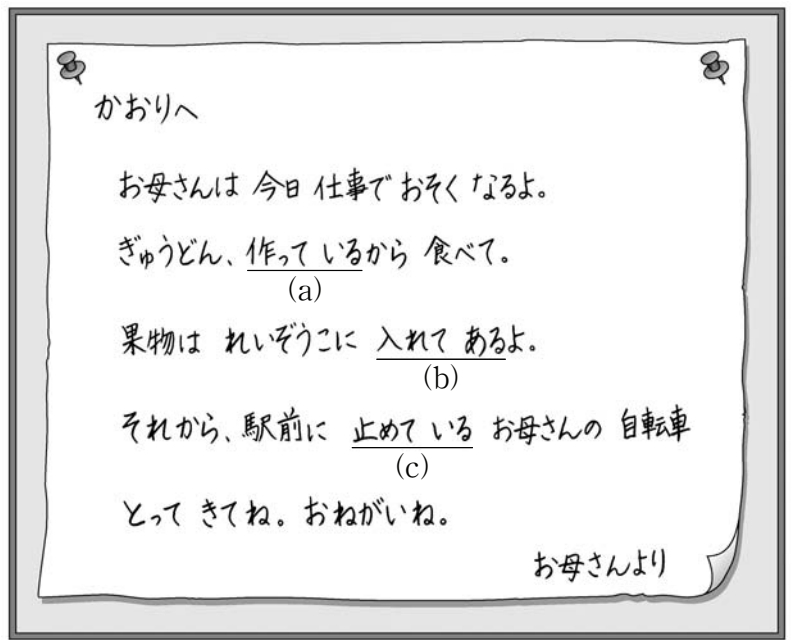 かおりへ
お母さんは 今日 仕事で おそく なるよ。
ぎゅうどん、作って いるから 食べて。
(a)
果物は れいぞうこに 入れて あるよ。
(b)
それから、駅前に 止めて いる お母さんの 自転車
(c)
とって きてね。おねがいね。
お母さんより